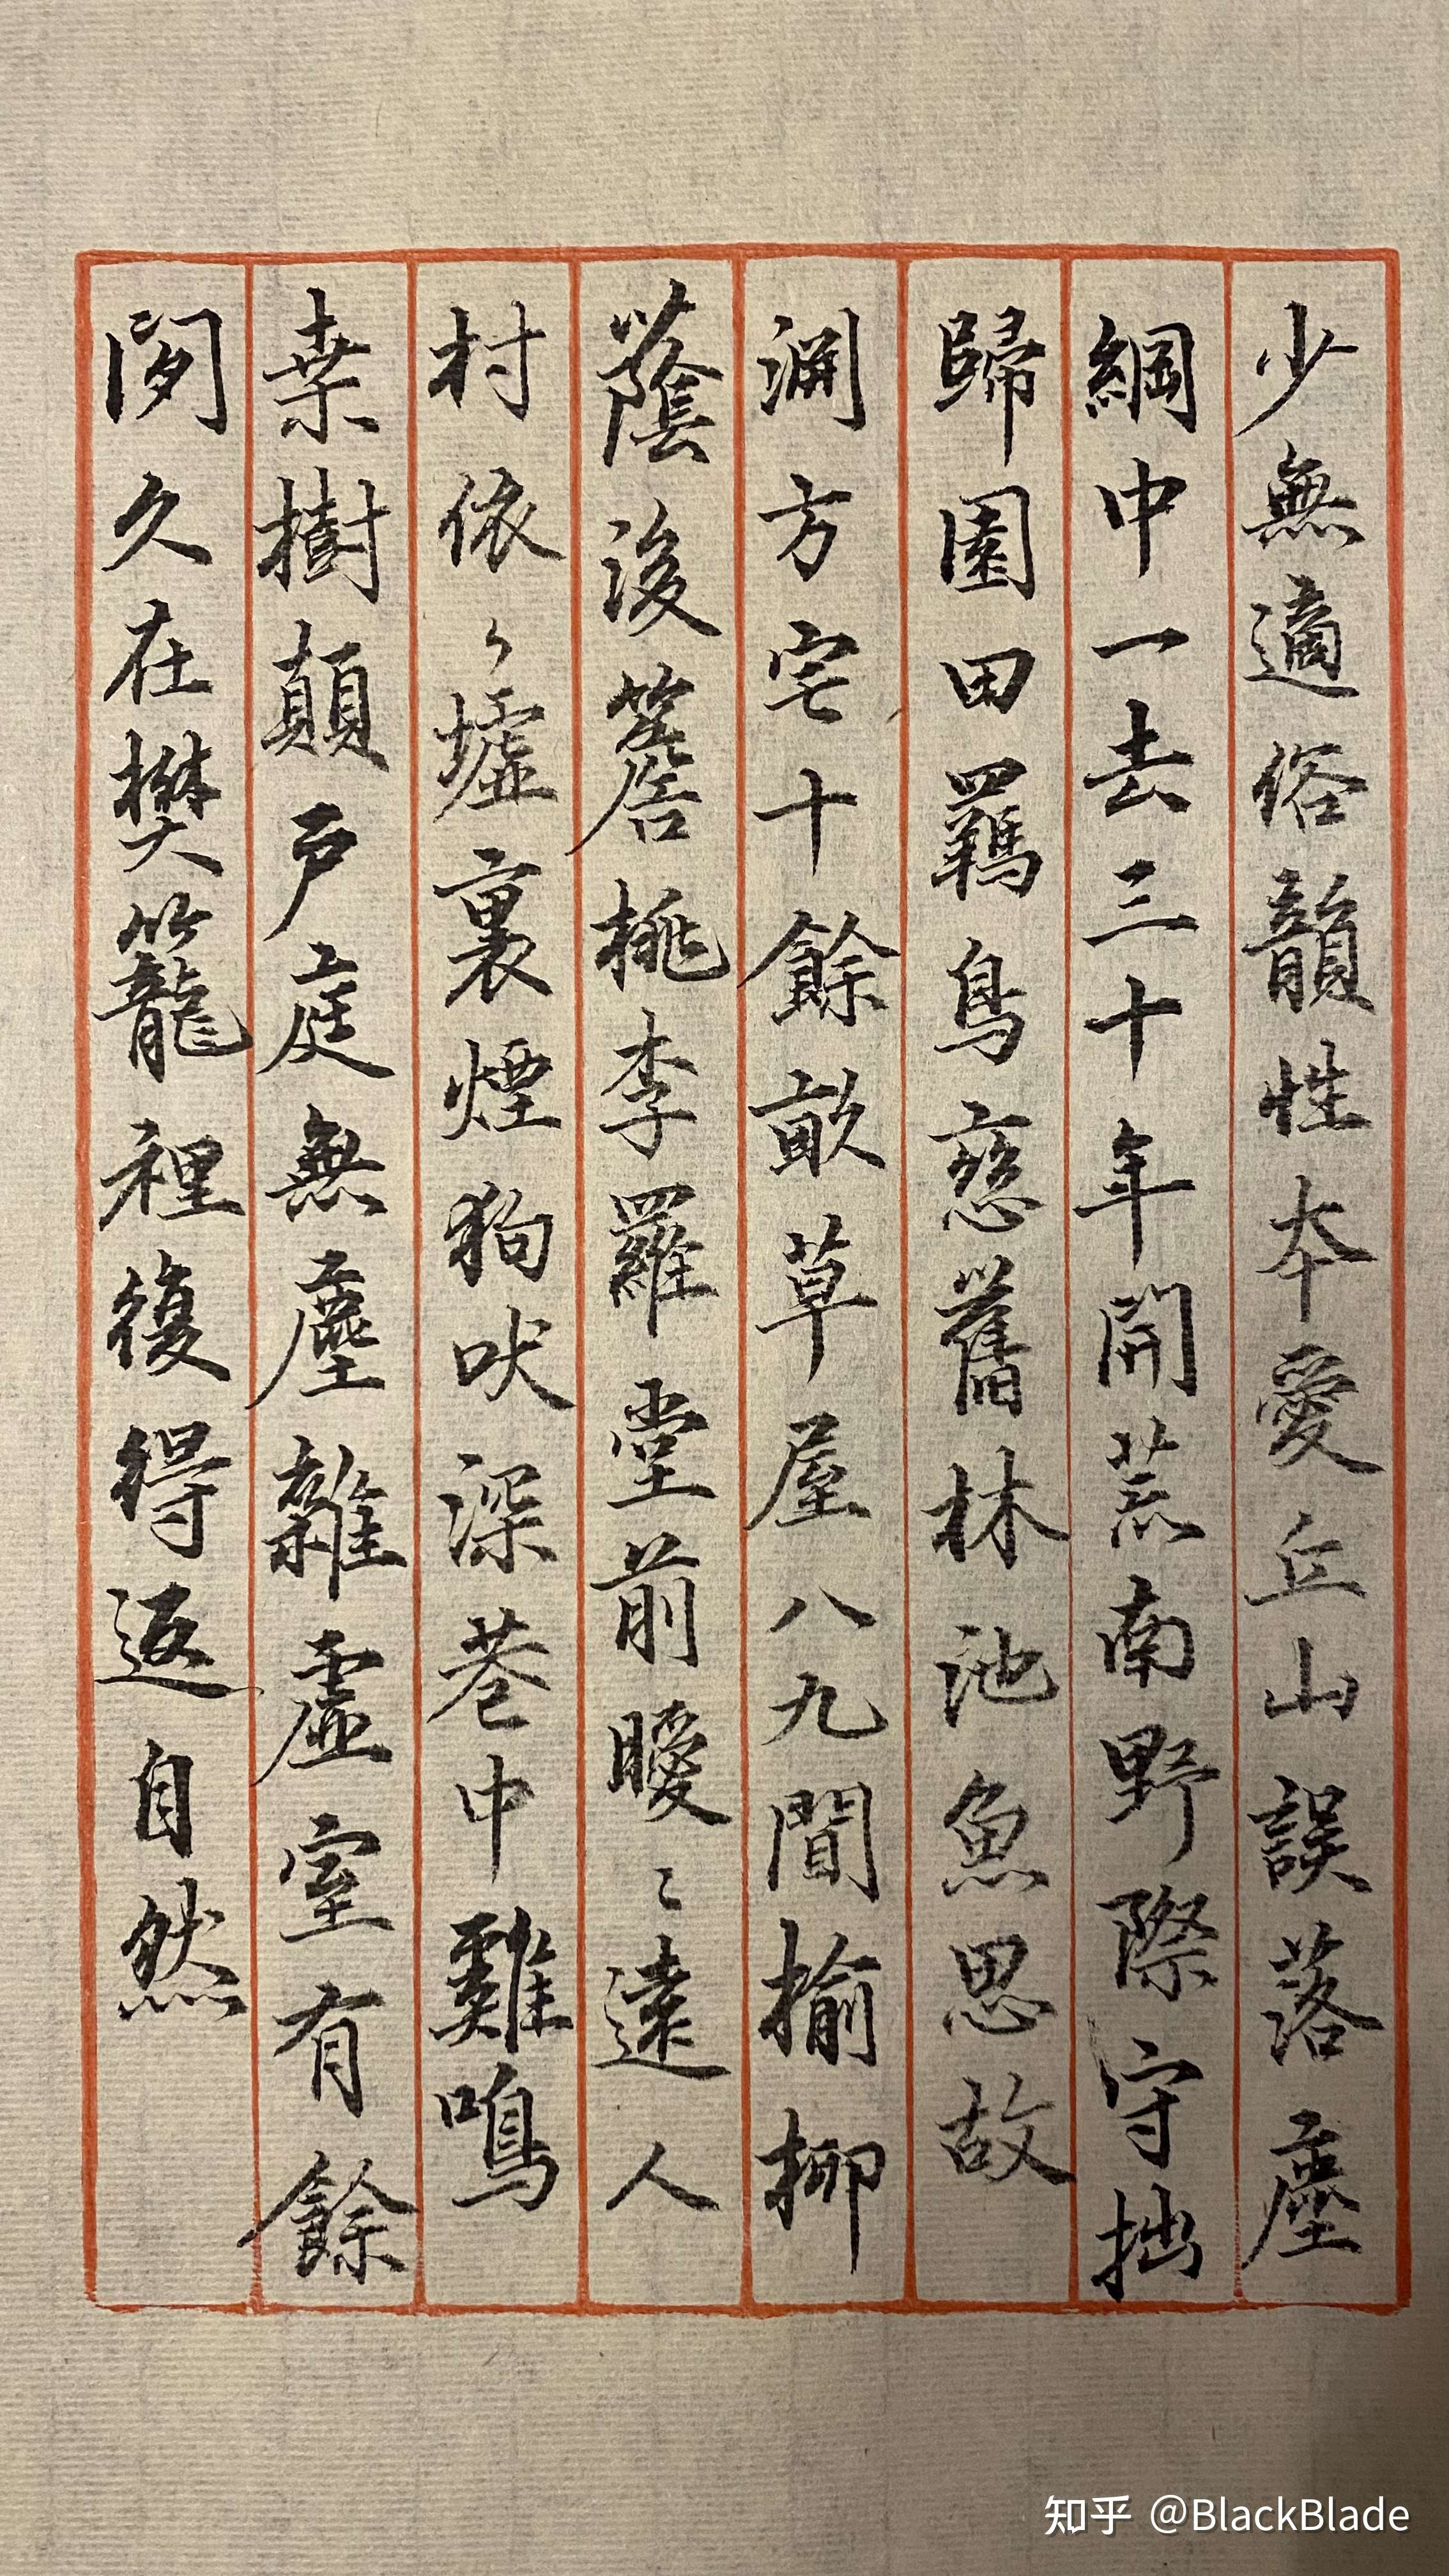 少無適俗韻性本愛丘山誤落塵
綱中一去三十年開荒南野際守拙
歸園田羈鳥戀舊林池魚思故
淵方宅十餘畝草屋八九間榆柳
蔭後簷桃李羅堂前曖〻遠人
村依〻墟裏煙狗吠深巷中雞鳴
桑樹顛戶庭無塵雜虛室有餘
閑久在樊籠裡復得返自然
知乎 @BlackBlade